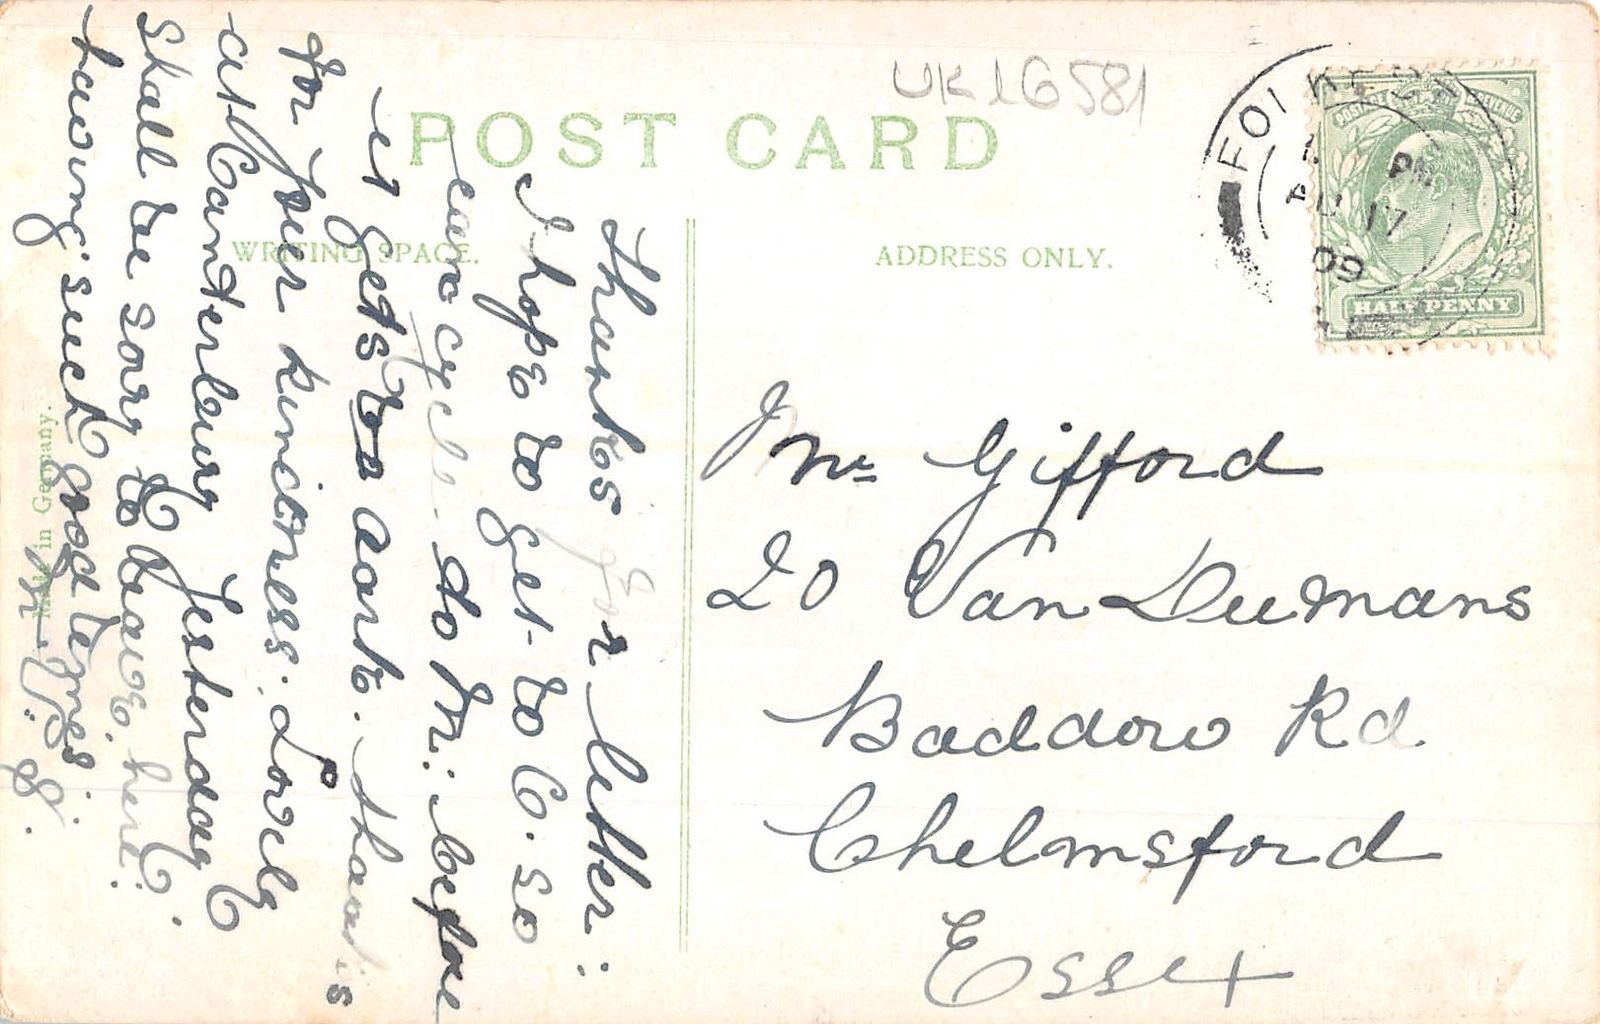 UK16581
POST CARD
WRITING SPACE.
ADDRESS ONLY.
FOLKEST
PM
AU 17
09
POSTAGE & REVENUE
HALFPENNY
Mr Gifford
20 Van Deemans
Baddow Rd
Chelmsford
Essex
Thanks for letter:
I hope to get to C. so
can cycle to M: before
it gets too dark. thanks
for your kindness. Lovely
at Canterbury Yesterday
shall be sorry to leave here.
having such good times.
Made in Germany.